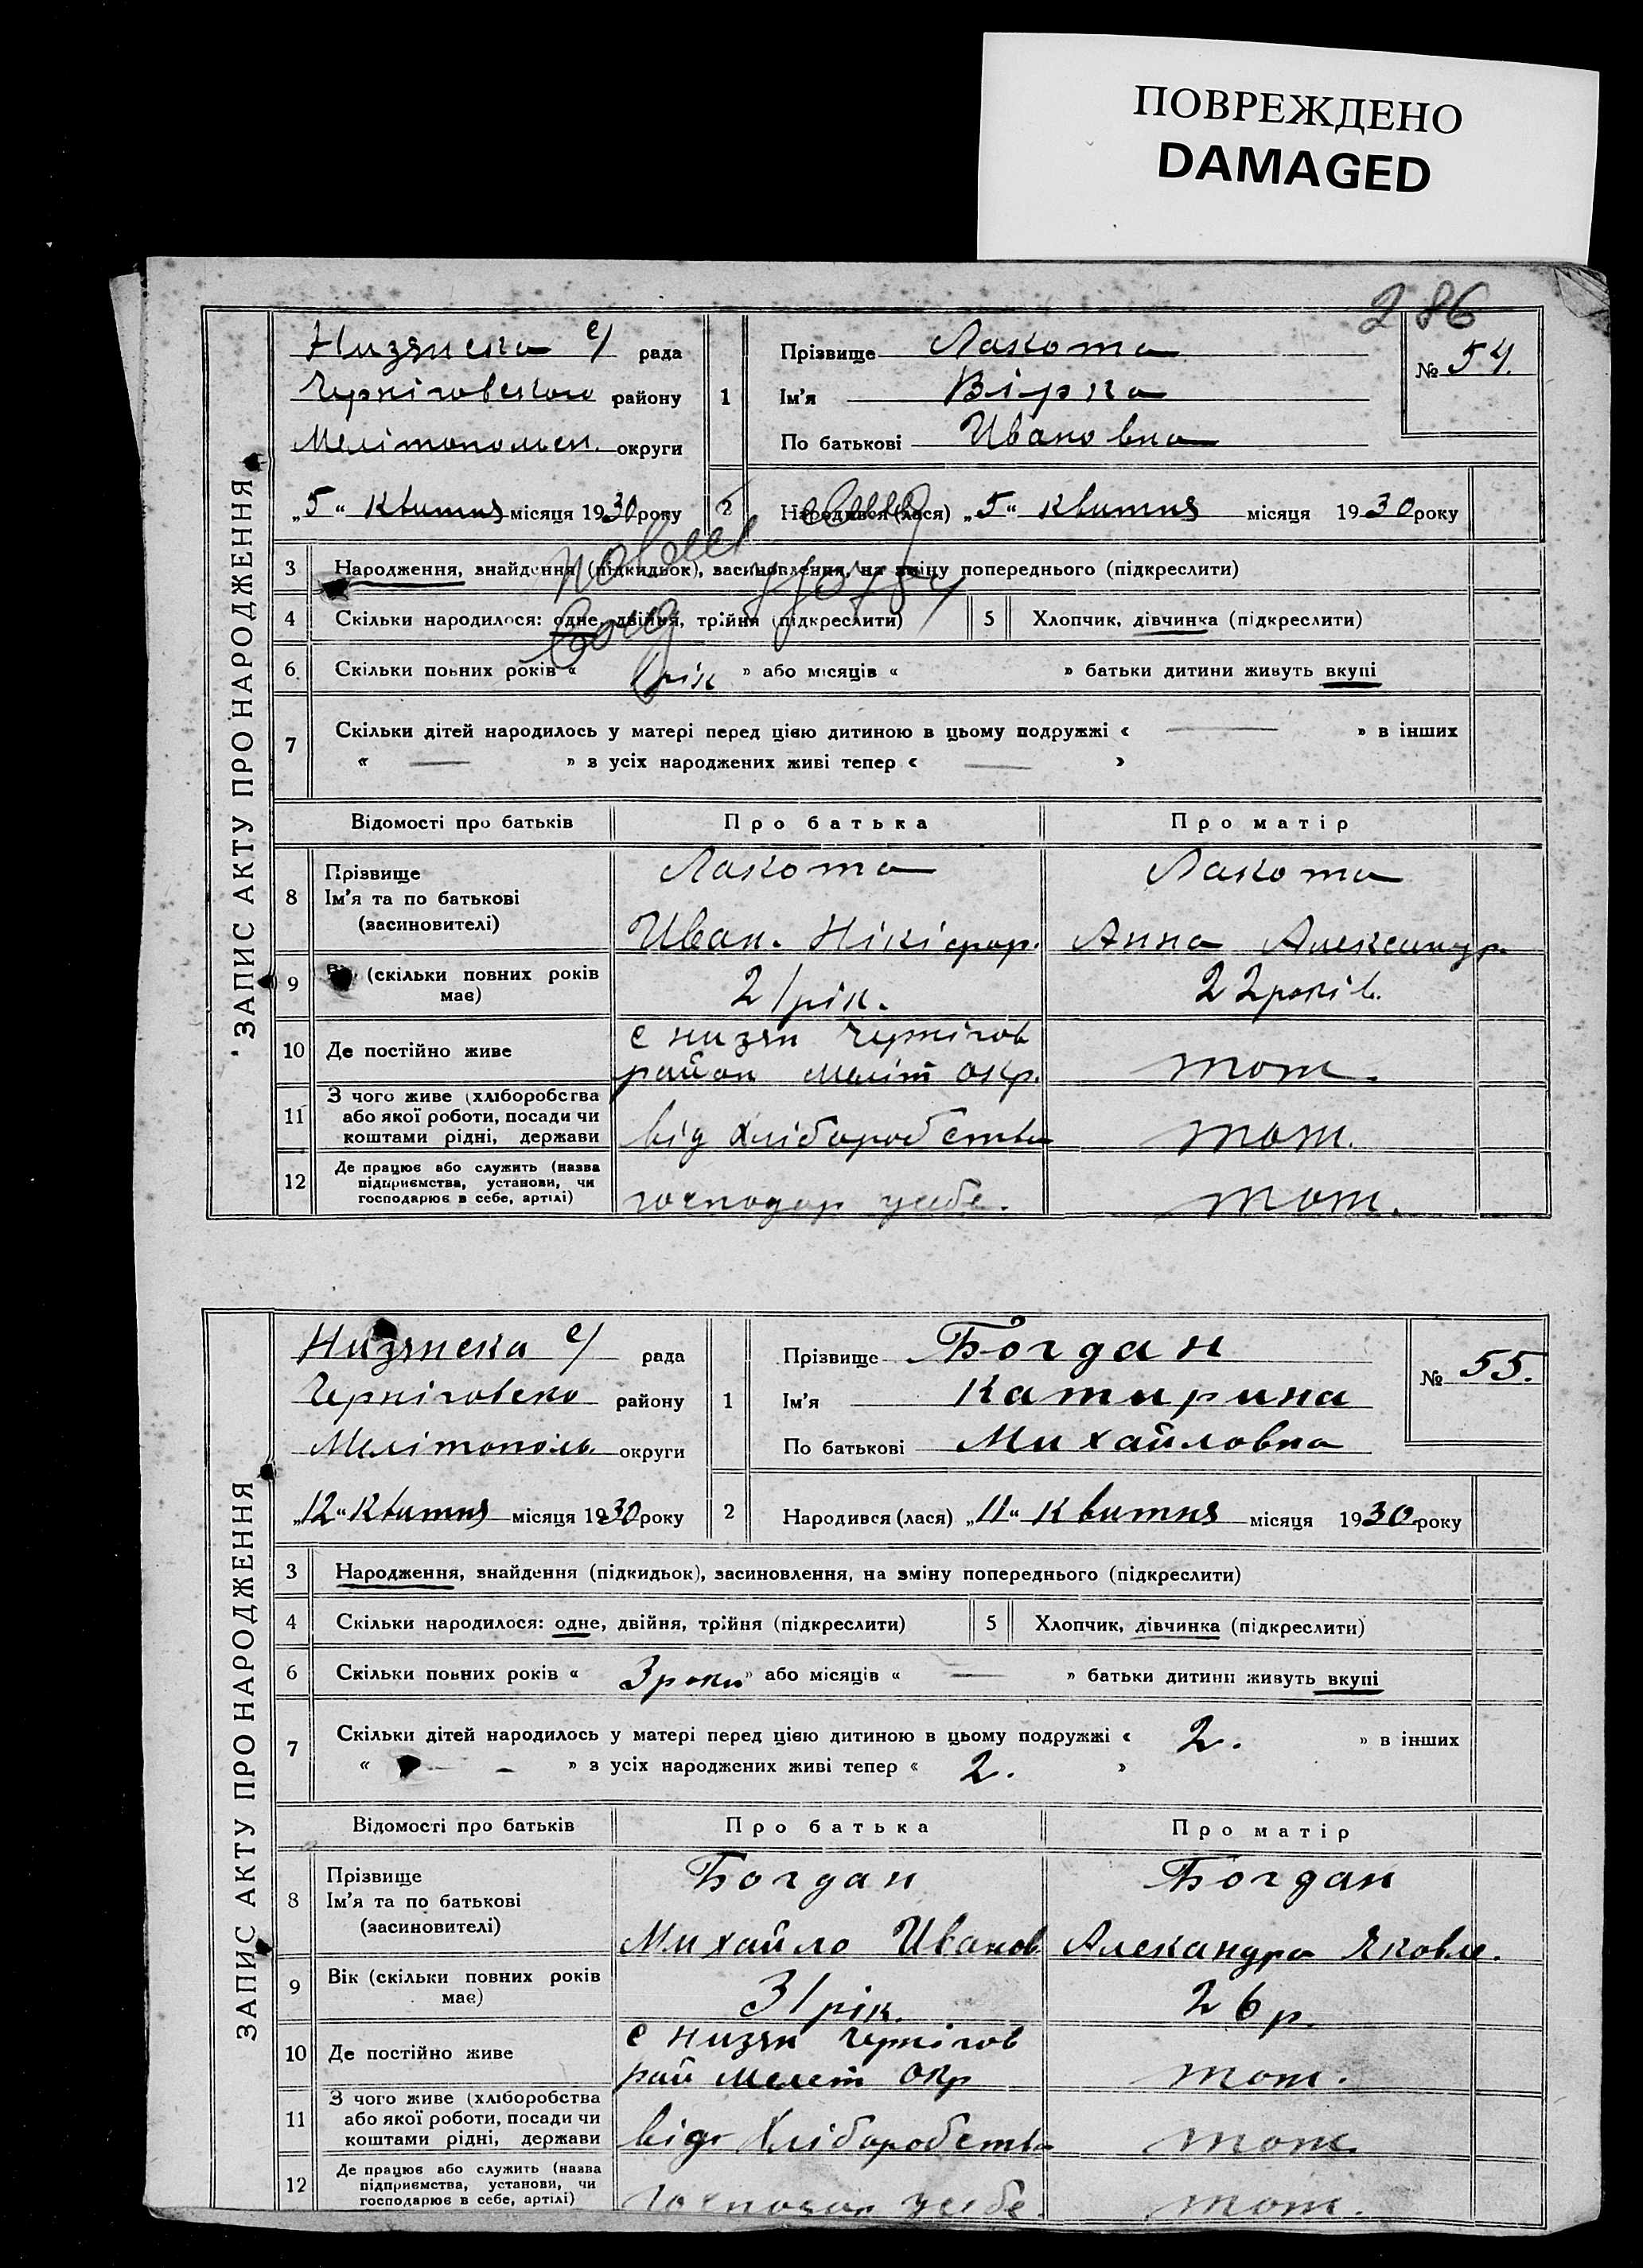 ПОВРЕЖДЕНО
DAMAGED
286
ЗАПИС АКТУ ПРО НАРОДЖЕННЯ
Низянска с/ рада
Черніговського району
Мелітопольск. округи
„5“ Квитня місяця 1930 року
1
Прізвище Лакота
Ім'я Вірка
По батькові Ивановна
№ 54.
2 Народився (лася) „5“ Квитня місяця 1930 року
3 Народження, знайдення (підкидьок), засиновлення, на зміну попереднього (підкреслити)
4 Скільки народилося: одне, двійня, трійня (підкреслити) 5 Хлопчик, дівчинка (підкреслити)
6. Скільки повних років « 1 рік » або місяців « » батьки дитини живуть вкупі
7 Скільки дітей народилось у матері перед цією дитиною в цьому подружжі « — » в інших
« — » з усіх народжених живі тепер « — »
Відомості про батьків Про батька Про матір
8 Прізвище
Ім'я та по батькові
(засиновителі)
Лакота
Иван. Нікіфор.
Лакота
Анна Александр.
9 (скільки повних років має) 21 рік. 22 років.
10 Де постійно живе
с Низян Чернігов
район Меліт окр.
тот.
11 З чого живе (хліборобства
або якої роботи, посади чи
коштами рідні, держави
від Хліборобства
тот.
12 Де працює або служить (назва
підприємства, установи, чи
господарює в себе, артілі)
господар усебе.
тот.
ЗАПИС АКТУ ПРО НАРОДЖЕННЯ
Низянска с/ рада
Черніговско району
Мелітополь. округи
„12“ Квитня місяця 1930 року
1
Прізвище Богдан
Ім'я Катирина
По батькові Михайловна
№ 55.
2 Народився (лася) „11“ Квитня місяця 1930 року
3 Народження, знайдення (підкидьок), засиновлення, на зміну попереднього (підкреслити)
4 Скільки народилося: одне, двійня, трійня (підкреслити) 5 Хлопчик, дівчинка (підкреслити)
6 Скільки повних років « 3 роки » або місяців « — » батьки дитини живуть вкупі
7 Скільки дітей народилось у матері перед цією дитиною в цьому подружжі « 2. » в інших
« — » з усіх народжених живі тепер « 2. »
Відомості про батьків Про батька Про матір
8 Прізвище
Ім'я та по батькові
(засиновителі)
Богдан
Михайло Иванов
Богдан
Александра Яковле.
9 Вік (скільки повних років має) 31 рік. 26 р.
10 Де постійно живе
с Низян Чернігов
рай Мелет окр
тот.
11 З чого живе (хліборобства
або якої роботи, посади чи
коштами рідні, держави
від Хліборобства
тот.
12 Де працює або служить (назва
підприємства, установи, чи
господарює в себе, артілі)
господар усебе.
тот.